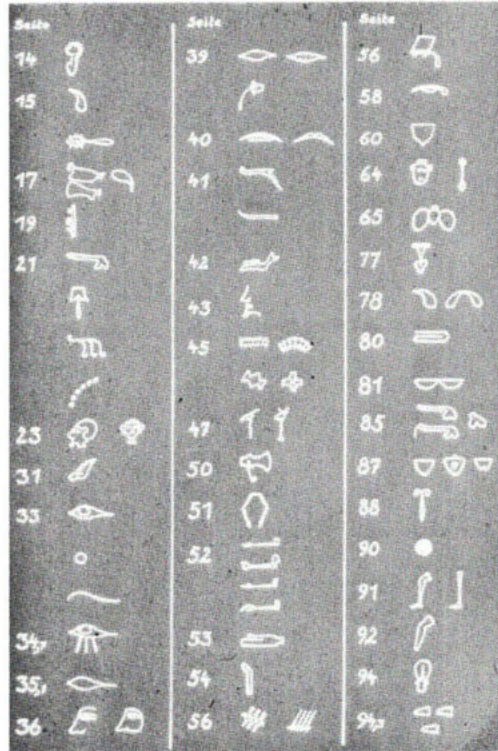 Seite
14
15
17
19
21
23
31
33
34,7
35,1
36
Seite
39
40
41
42
43
45
47
50
51
52
53
54
56
Seite
56
58
60
64
65
77
78
80
81
85
87
88
90
91
92
94
94,3